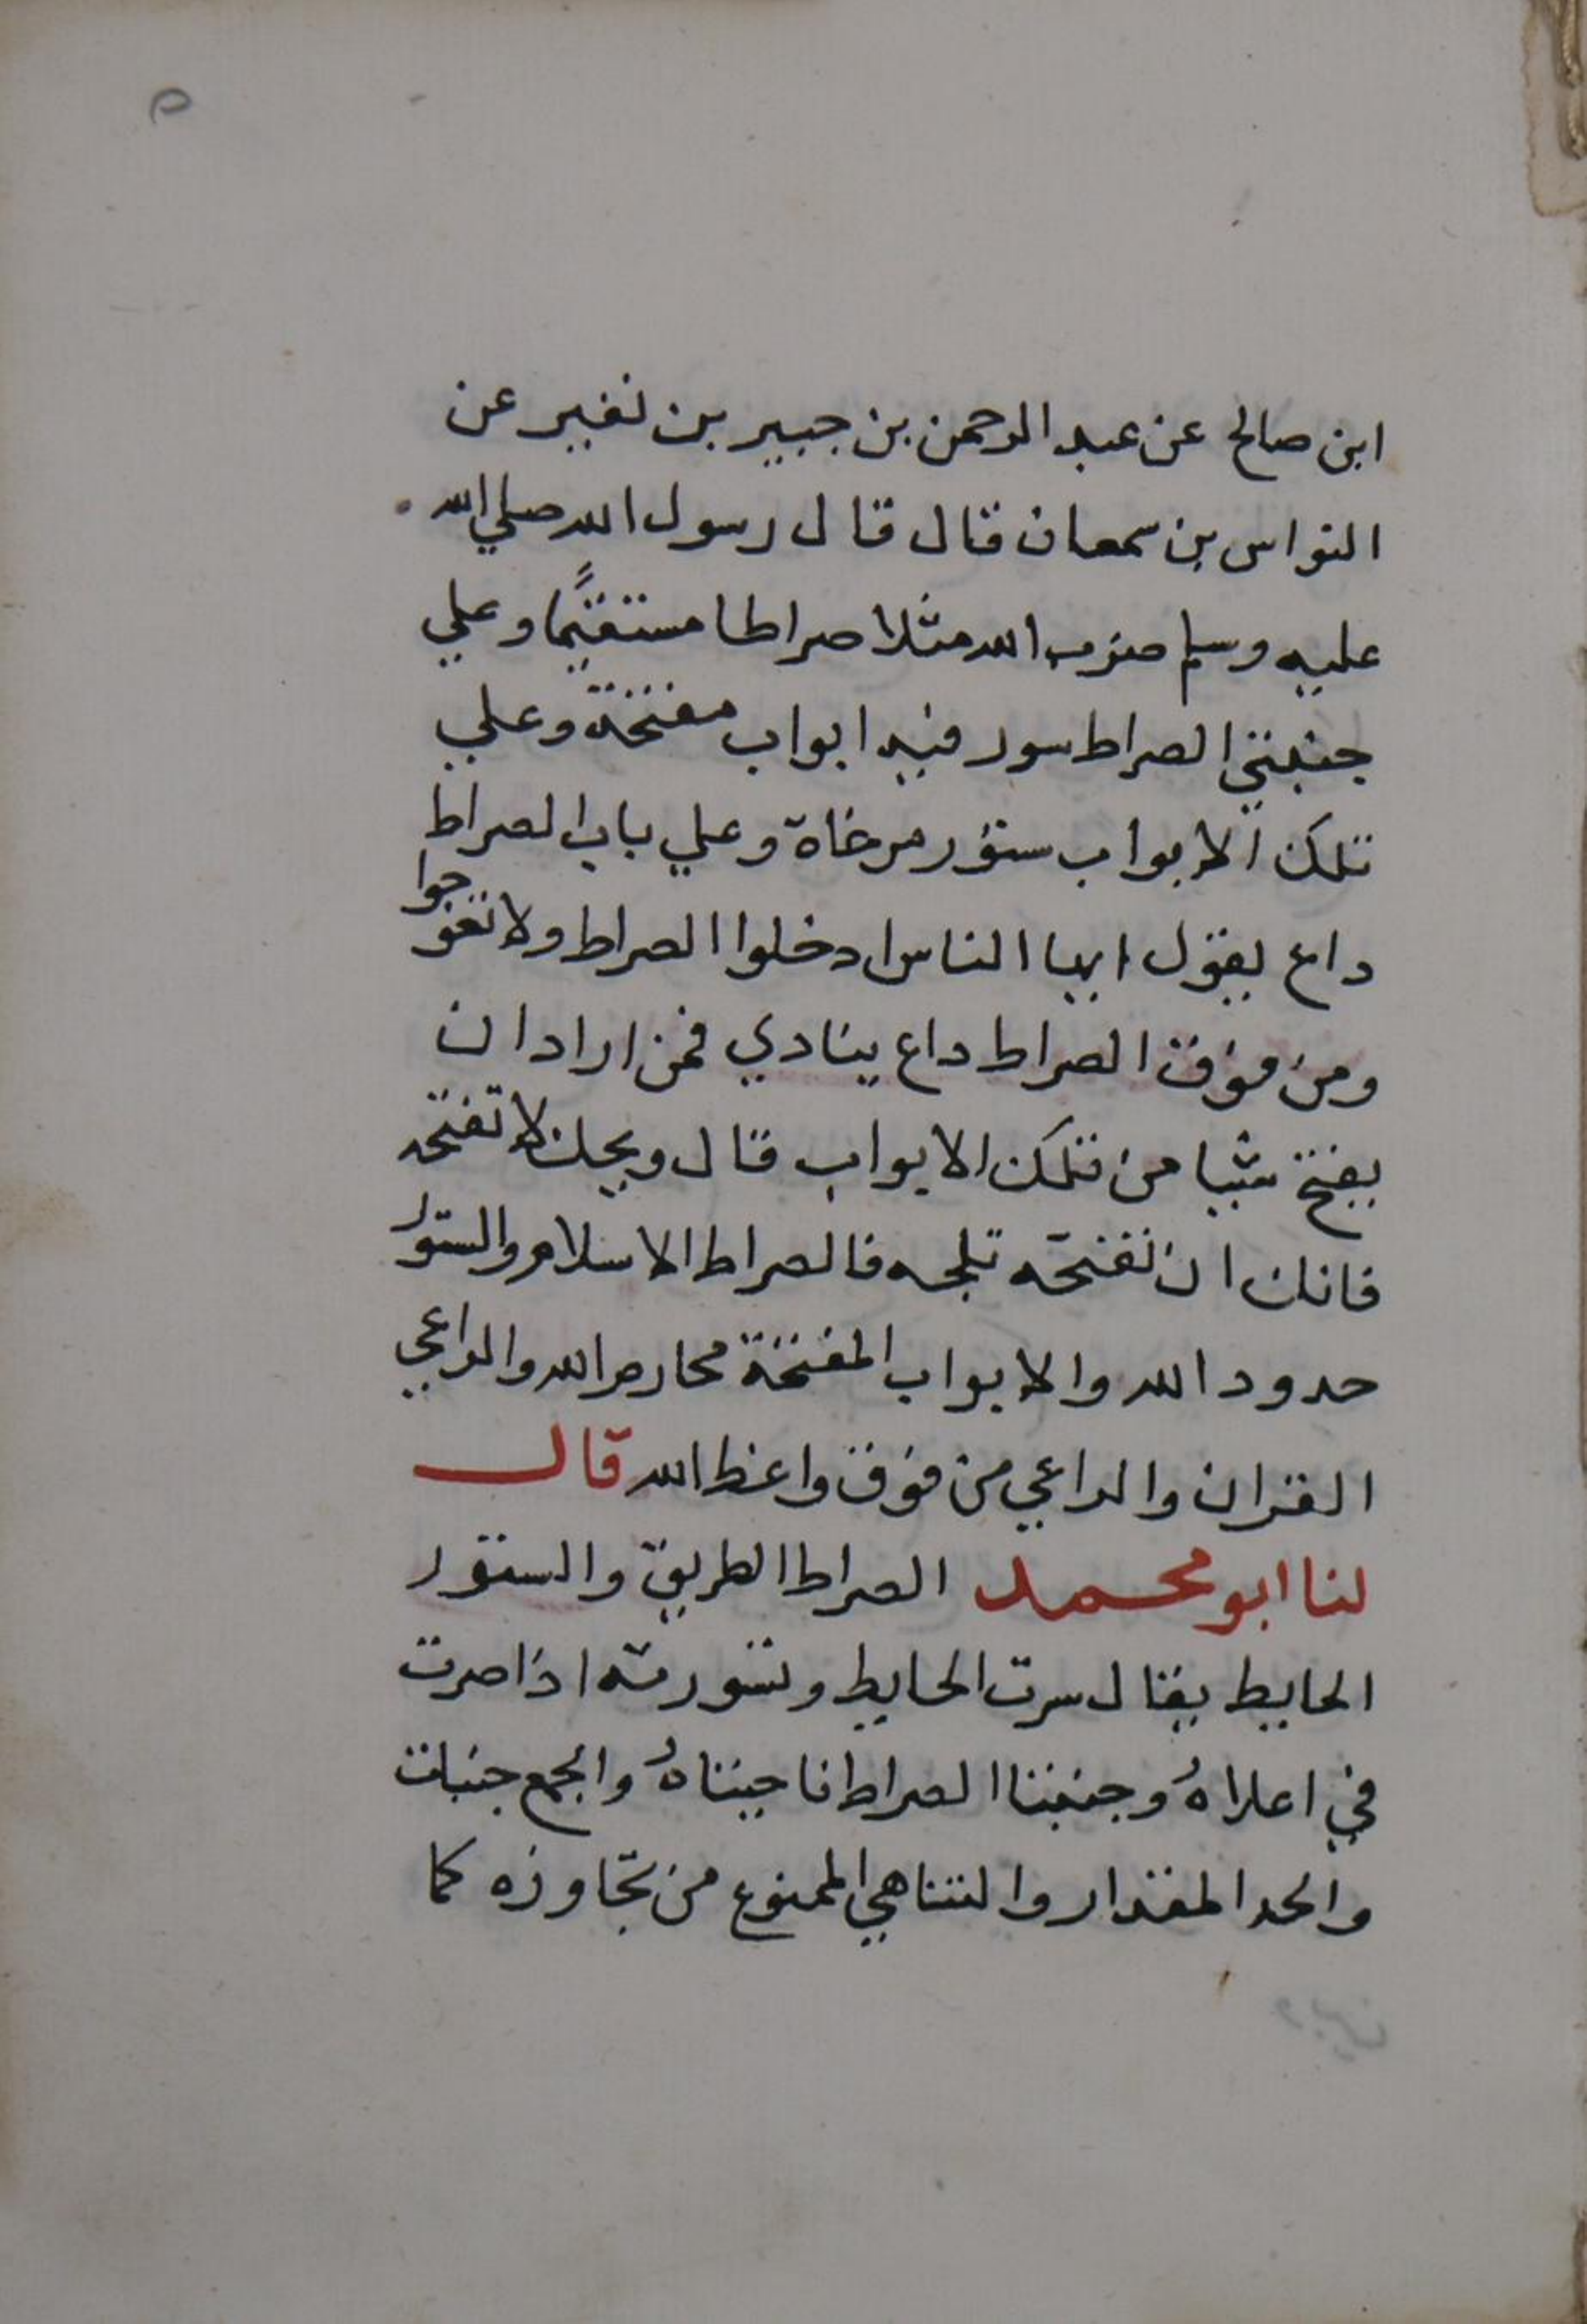 ٥
ابن صالح عن عبد الرحمن بن جبير بن نفير عن
النواس بن سمعان قال قال رسول الله صلي الله
عليه وسلم ضرب الله مثلا صراطا مستقيمًا وعلي
جنبتي الصراط سور فيه ابواب مفتحة وعلي
تلك الابواب ستور مرخاة وعلي باب الصراط
داع يقول ايها الناس ادخلوا الصراط ولا تعوجوا
ومن فوق الصراط داع ينادي فمن اراد ان
يفتح شيا من تلك الابواب قال ويحك لا تفتحه
فانك ان تفتحه تلجه فالصراط الاسلام والستور
حدود الله والابواب المفتحة محارم الله والداعي
القران والداعي من فوق واعظ الله قال
لنا ابو محمد الصراط الطريق والستور
الحايط يقال سرت الحايط وتسورته اذا صرت
في اعلاهُ وجنبتا الصراط ناحيتاهُ والجمع جنبات
والحد المقدار والتناهي الممنوع من تجاوزه كما